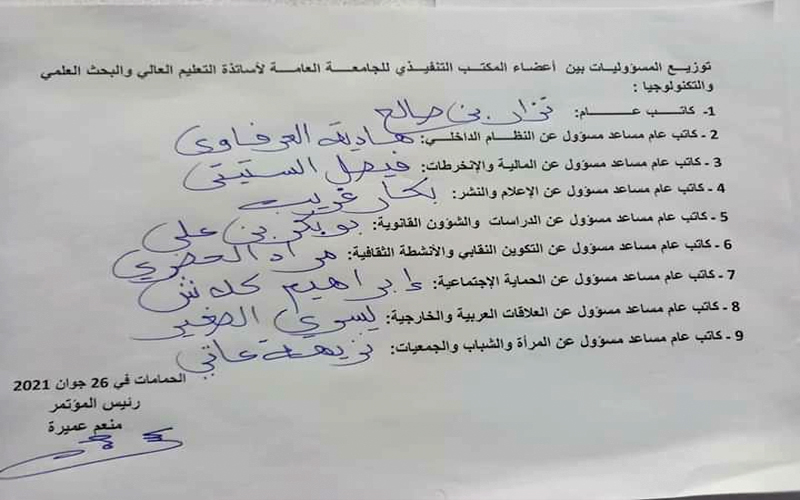 توزيع المسؤوليات بين أعضاء المكتب التنفيذي للجامعة العامة لأساتذة التعليم العالي والبحث العلمي
والتكنولوجيا :
1- كاتب عام: نزار بن صالح
2 - كاتب عام مساعد مسؤول عن النظام الداخلي: هادية العرفاوي
3 - كاتب عام مساعد مسؤول عن المالية والإنخرطات: فيصل الستيتي
4 - كاتب عام مساعد مسؤول عن الإعلام والنشر: بكار غريب
5 - كاتب عام مساعد مسؤول عن الدراسات والشؤون القانوية: بوبكر بن علي
6 - كاتب عام مساعد مسؤول عن التكوين النقابي والأنشطة الثقافية: مراد الحضري
7 - كاتب عام مساعد مسؤول عن الحماية الإجتماعية: إبراهيم
8 - كاتب عام مساعد مسؤول عن العلاقات العربية والخارجية: يسوي الصغير
9 - كاتب عام مساعد مسؤول عن المرأة والشباب والجمعيات: نزيهة عاتي
الحمامات في 26 جوان 2021
رئيس المؤتمر
منعم عميرة